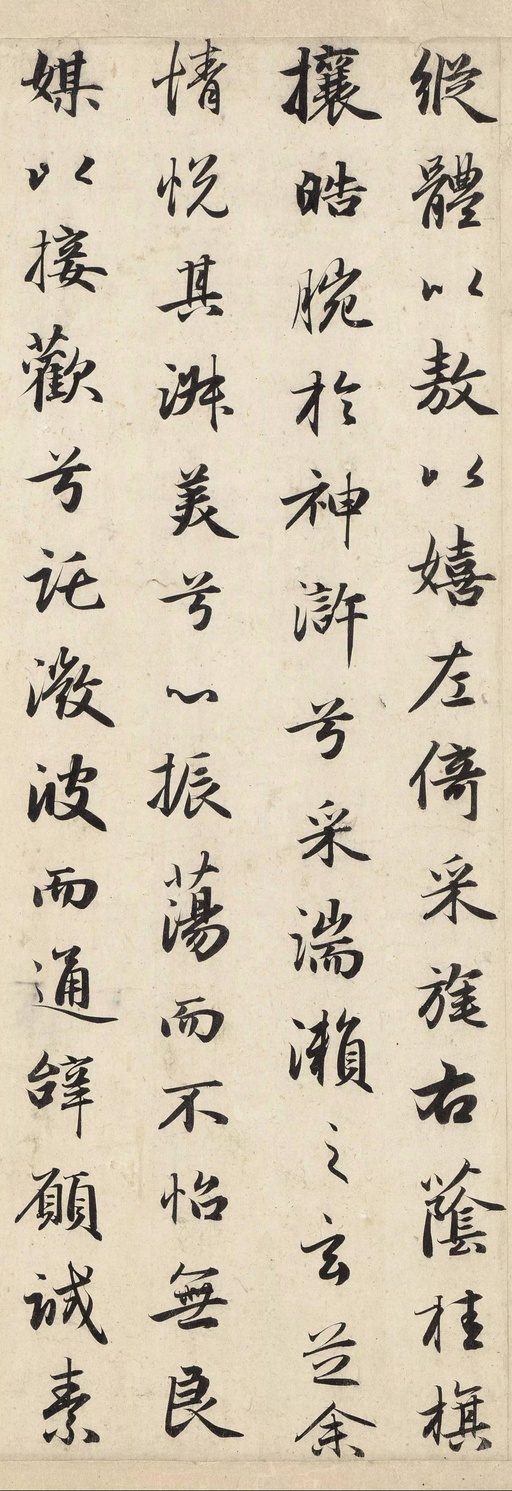 縱體以敖以嬉左倚采旄右蔭桂旗
攘皓腕於神滸兮采湍瀨之玄芝余
情悅其淑美兮心振蕩而不怡無良
媒以接歡兮託微波而通辭願誠素